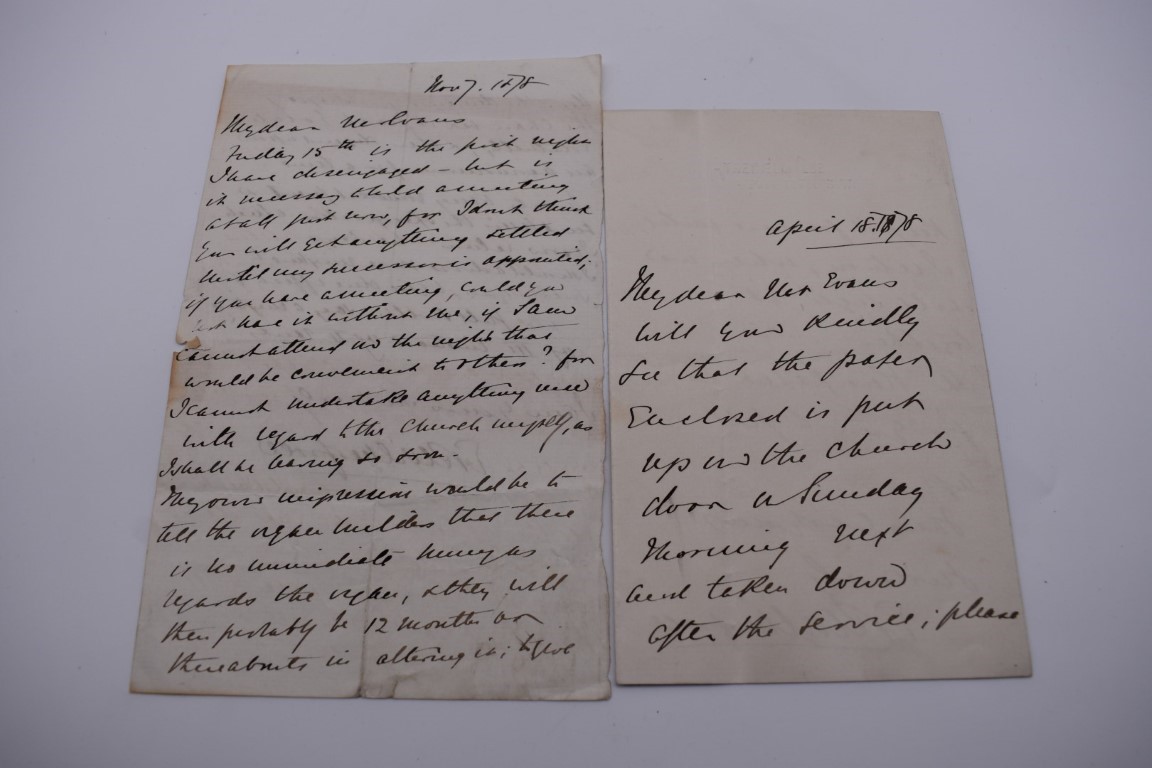 Nov 7. 1878
My dear Mr Evans
Friday 15th is the first night
I have disengaged - but is
it necessary to hold a meeting
at all just now, for I don't think
you will get anything settled
until my successor is appointed;
if you have a meeting, could you
not have it without me, if I am
cannot attend on the night that
would be convenient to others? for
I cannot undertake anything new
with regard to the Church myself, as
I shall be leaving so soon.
My own impression would be to
tell the organ builders that there
is no immediate hurry as
regards the organ, & they will
then probably be 12 months or
thereabouts in altering it; to give
April 18. 1878
My dear Mr Evans
Will you kindly
see that the paper
Enclosed is put
up on the Church
door on Sunday
Morning next
and taken down
after the service; please